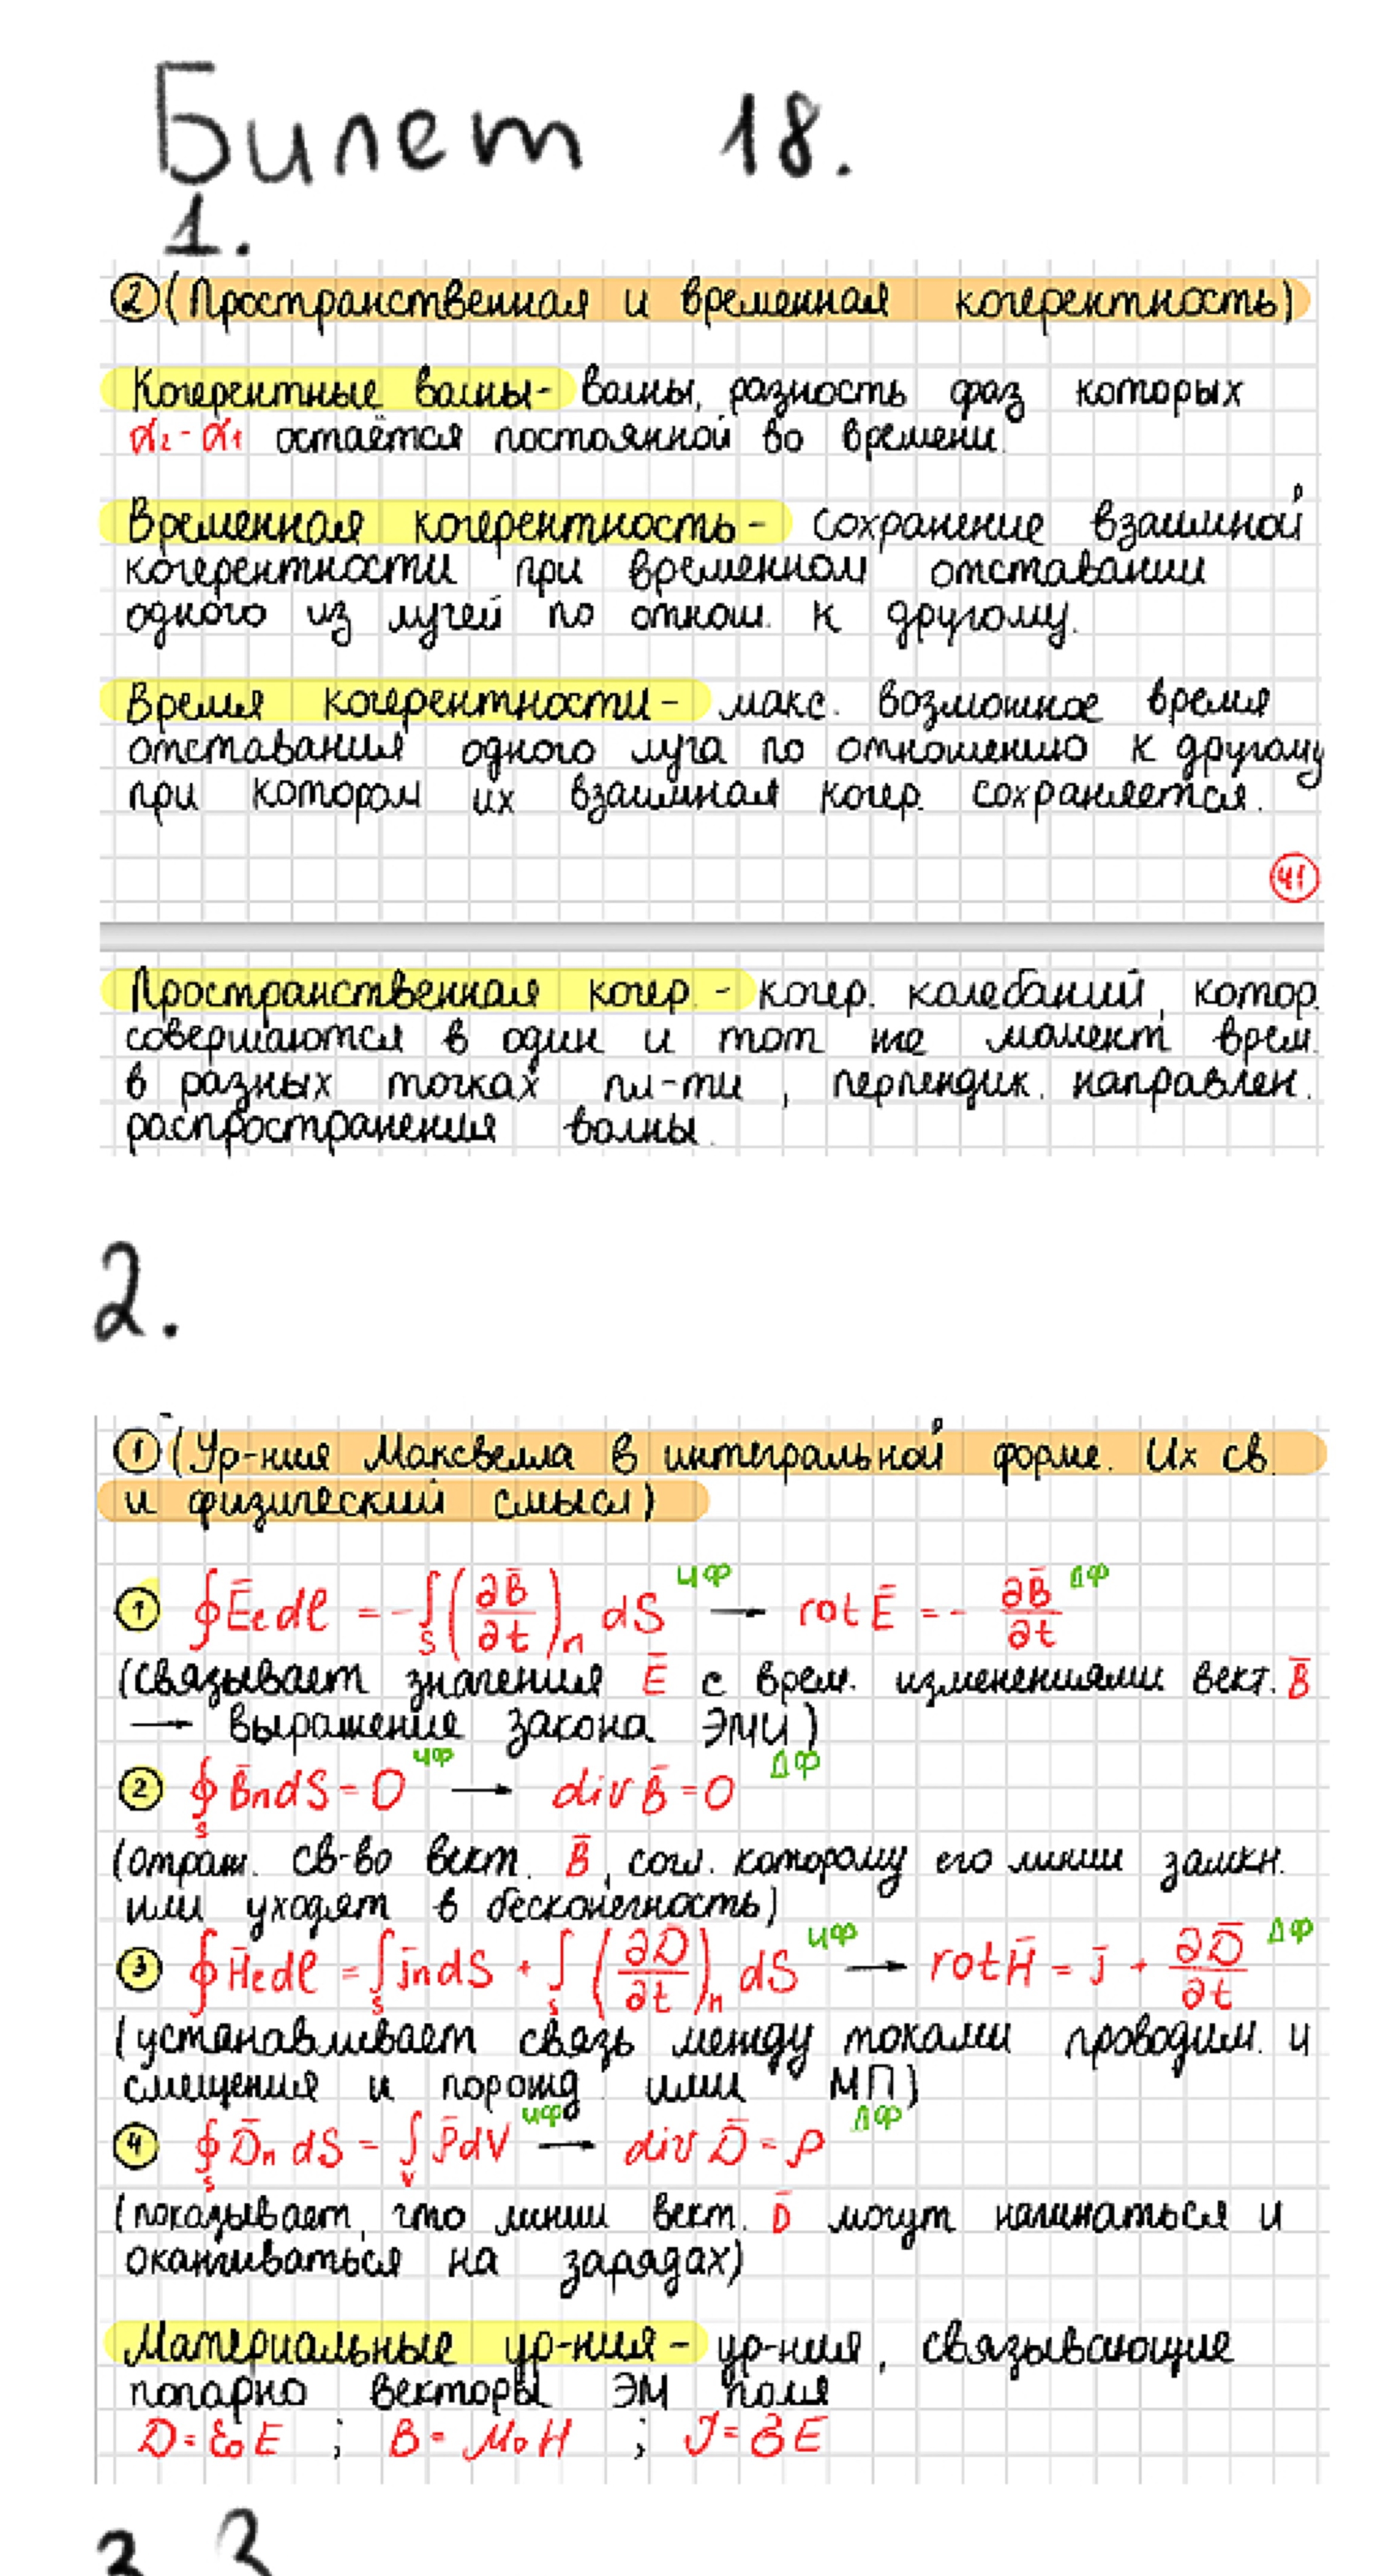 Билет 18.
1.
② (Пространственная и временная когерентность)
Когерентные волны- волны, разность фаз которых
α₂-α₁ остаётся постоянной во времени.
Временная когерентность- сохранение взаимной
когерентности при временном отставании
одного из лучей по отнош. к другому.
Время когерентности- макс. возможное время
отставания одного луча по отношению к другому
при котором их взаимная когер. сохраняется.
41
Пространственная когер. - когер. колебаний, котор.
совершаются в один и тот же момент врем.
в разных точках пл-ти, перпендик. направлен.
распространения волны.
2.
① (Ур-ния Максвелла в интегральной форме. Их св.
и физический смысл)
① ∮ Ēₑdℓ = -∫_S (∂B̄/∂t)ₙ dS ИФ → rot Ē = - ∂B̄/∂t ДФ
(связывает значения Ē с врем. изменениями вект. B̄
→ выражение закона ЭМИ)
② ∮_S B̄ₙdS = 0 ИФ → div B̄ = 0 ДФ
(отраж. св-во вект. B̄, согл. которому его линии замкн.
или уходят в бесконечность)
③ ∮ H̄ₑdℓ = ∫_S j̄ₙdS + ∫_S (∂D̄/∂t)ₙ dS ИФ → rot H̄ = j̄ + ∂D̄/∂t ДФ
(устанавливает связь между токами проводим. и
смещения и порожд. ими МП)
④ ∮_S D̄ₙ dS = ∫_V ρ̄dV ИФ → div D̄ = ρ ДФ
(показывает, что линии вект. D̄ могут начинаться и
оканчиваться на зарядах)
Материальные ур-ния- ур-ния, связывающие
попарно векторы ЭМ поля
D = ε₀E ; B = μ₀H ; J = бE